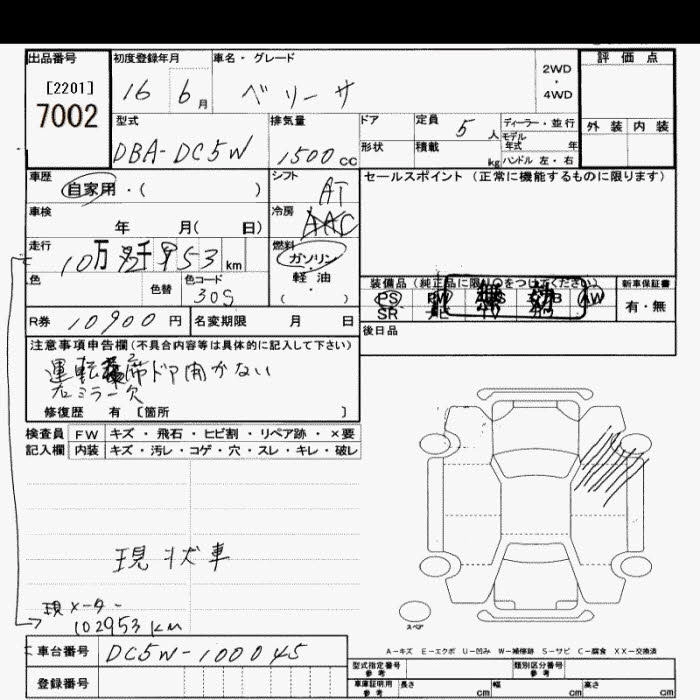 出品番号
[2201]
7002
初度登録年月
16 6月
車名・グレード
ベリーサ
2WD
・
4WD
評価点
外装 内装
型式
DBA-DC5W
排気量
1500cc
ドア
形状
定員 5人
積載 kg
ディーラー・並行
モデル年式 年
ハンドル 左・右
車歴
自家用・( )
シフト
AT
車検
年 月( 日)
冷房
AAC
走行
10万 千953 km
燃料
ガソリン
・
軽油
( )
色
色替
色コード
30S
R券 10900円
名変期限 月 日
セールスポイント(正常に機能するものに限ります)
装備品(純正品に限り〇をつけてください)
PS AW
SR TV
新車保証書
有・無
後日品
注意事項申告欄(不具合内容等は具体的に記入して下さい)
運転席ドア開かない
右ミラー欠
修復歴 有 [箇所 ]
検査員記入欄
FW キズ・飛石・ヒビ割・リペア跡・×要
内装 キズ・汚レ・コゲ・穴・スレ・キレ・破レ
現状車
現メーター
102953km
スペア
A-キズ E-エクボ U-凹み W-補修跡 S-サビ C-腐食 XX-交換済
車台番号 DC5W-100045
登録番号
型式指定番号 参考
類別区分番号 参考
車庫証明用 参考
長さ cm
幅 cm
高さ cm